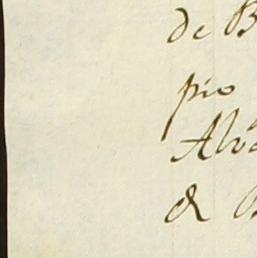 de B
pio
Alva
& B